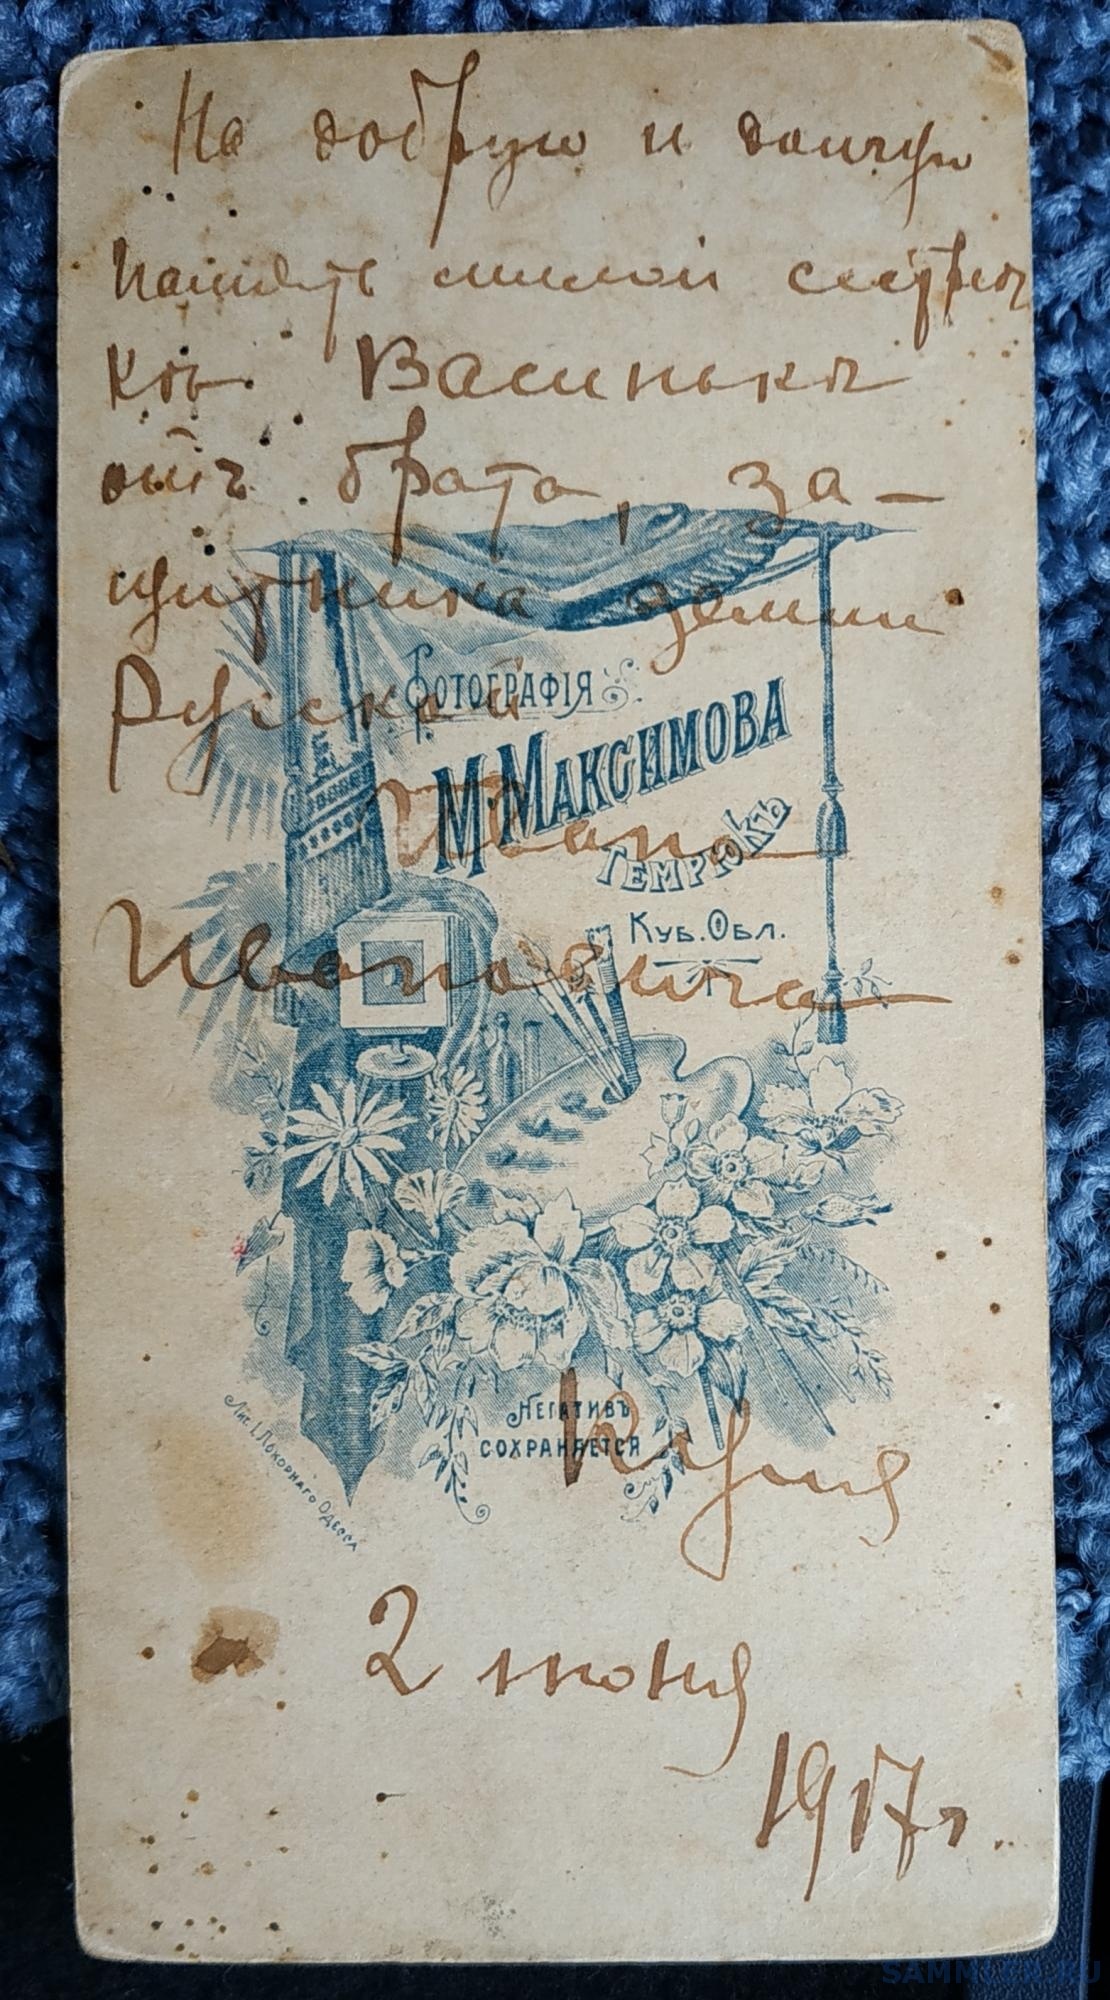 На добрую и долгую
память милой сестрич
кѣ Васинькѣ
отъ брата, за-
щитника земли
Русской
Ивана
Ивановича
ФОТОГРАФІЯ
М. МАКСИМОВА
ТЕМРЮКЪ
КУБ. ОБЛ.
НЕГАТИВЪ
СОХРАНЯЕТСЯ
Лит. І. Покорнаго Одесса
2 июня
1917 г.
SAMMLER.RU